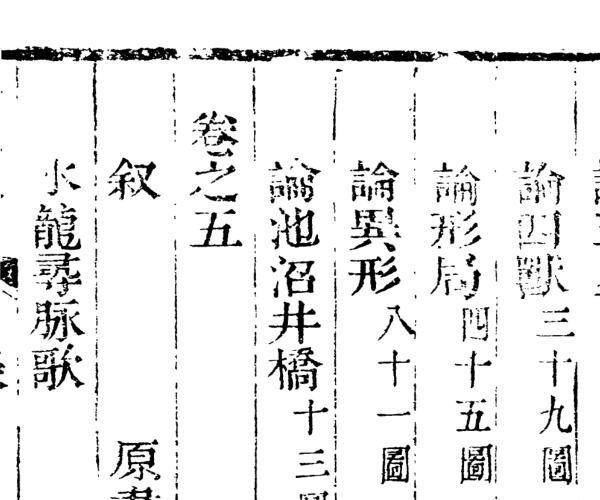 論四獸三十九圖
論形局四十五圖
論異形八十一圖
論池沼井橋十三圖
卷之五
叙 原
水龍尋脉歌